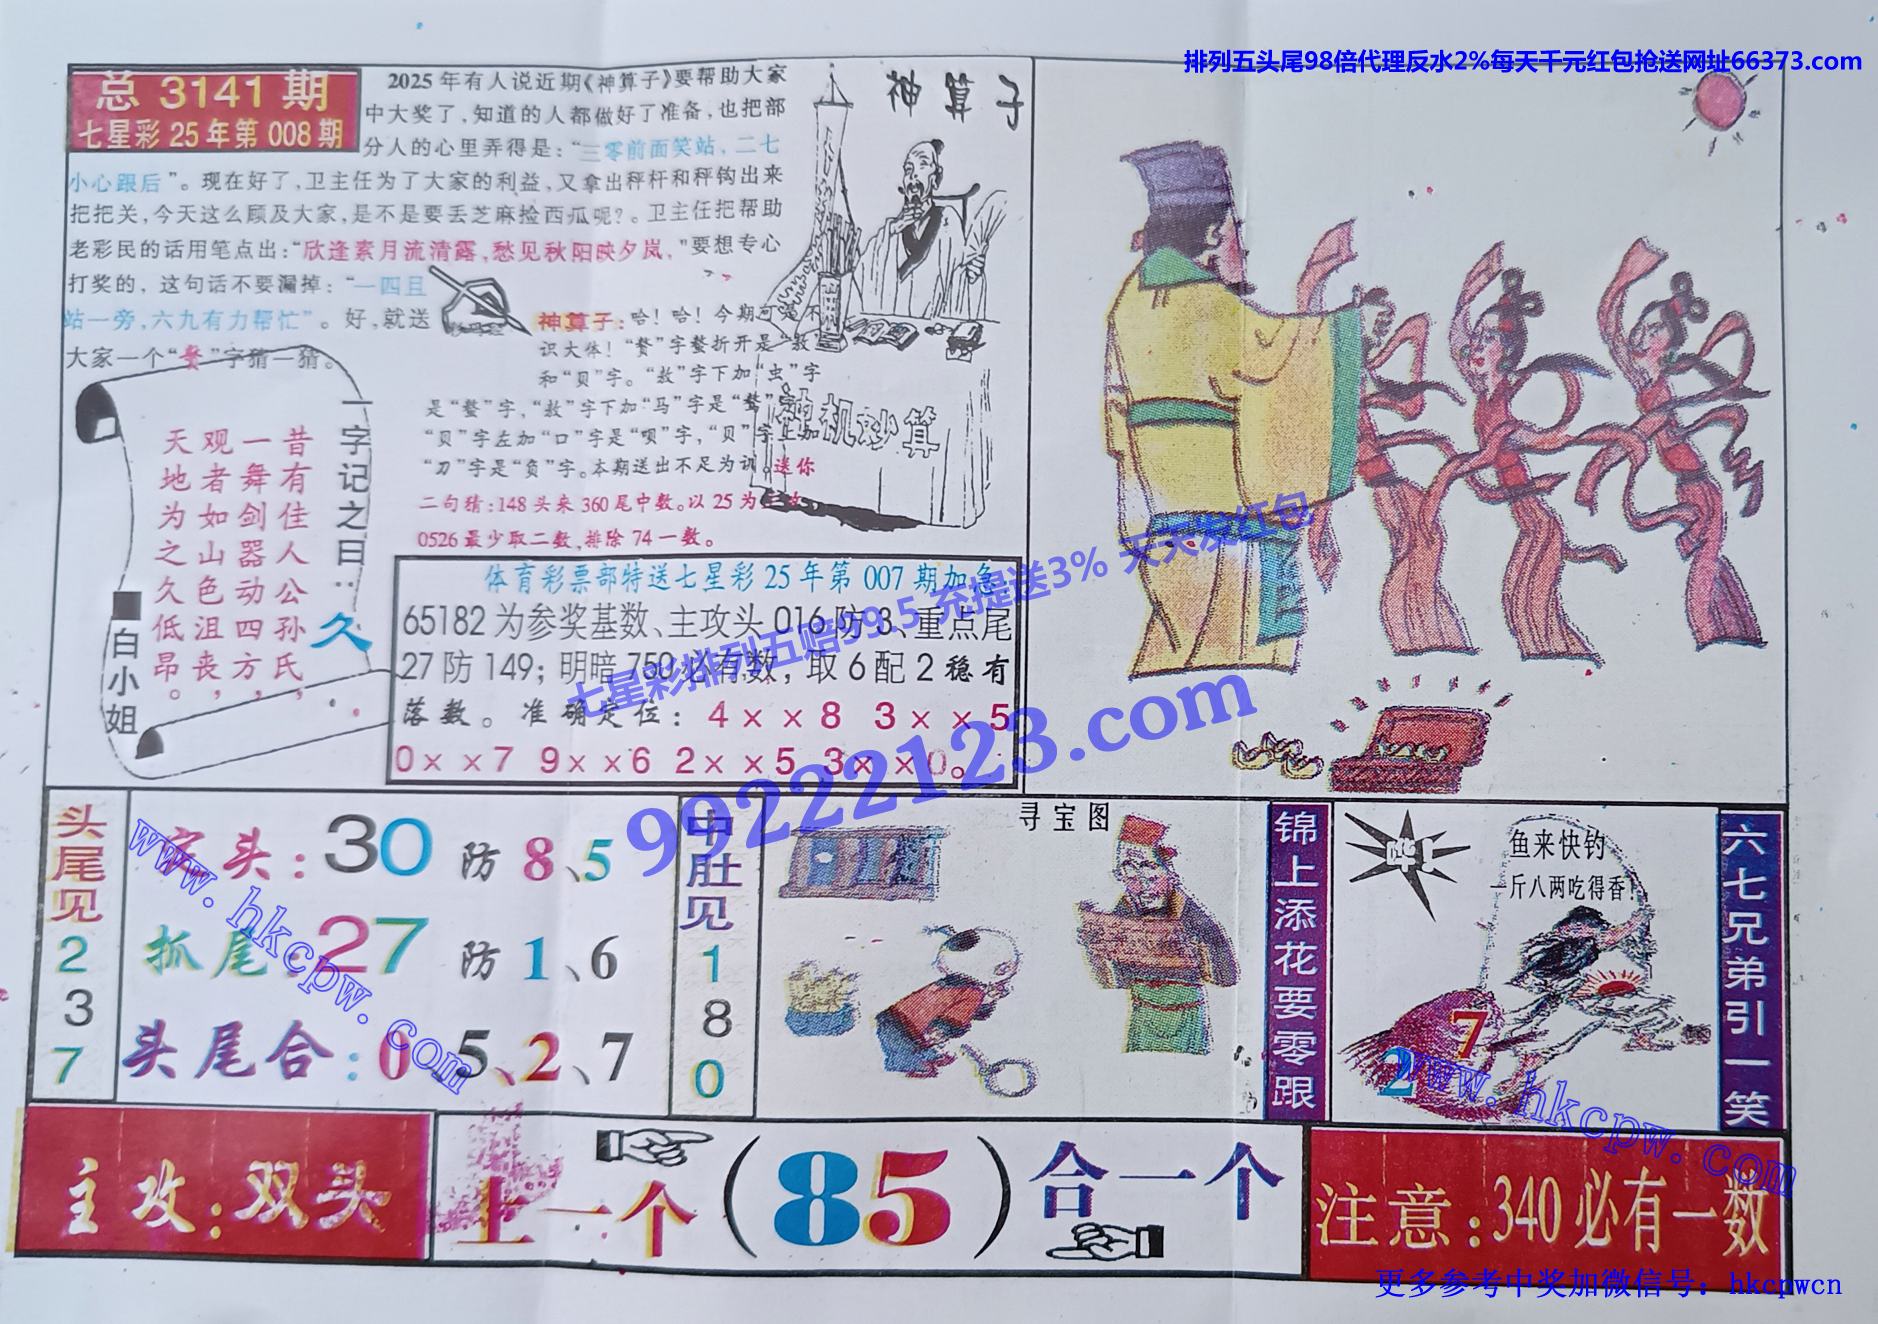 排列五头尾98倍代理反水2%每天千元红包抢送网址66373.com
总 3141 期
七星彩 25 年第 008 期
2025年有人说近期《神算子》要帮助大家
中大奖了，知道的人都做好了准备，也把部
分人的心里弄得是：“三零前面笑站，二七
小心跟后”。现在好了，卫主任为了大家的利益，又拿出秤杆和秤钩出来
把把关，今天这么顾及大家，是不是要丢芝麻捡西瓜呢？。卫主任把帮助
老彩民的话用笔点出：“欣逢素月流清露，愁见秋阳映夕岚，”要想专心
打奖的，这句话不要漏掉：“一四且
站一旁，六九有力帮忙”。好，就送
大家一个“赘”字猜一猜。
神算子
神算子：哈！哈！今期可笑不
识大体！“赘”字整折开是“敖”
和“贝”字。“敖”字下加“虫”字
是“螯”字，“敖”字下加“马”字是“骜”字，
“贝”字左加“口”字是“呗”字，“贝”字上加
“刀”字是“负”字。本期送出不足为训。送你
二句猜：148头来360尾中数。以25为主攻，
0526最少取二数，排除74一数。
神机妙算
一字记之曰：久
昔有佳人公孙氏，
一舞剑器动四方，
观者如山色沮丧，
天地为之久低昂。
■白小姐
体育彩票部特送七星彩 25 年第 007 期加急
65182为参奖基数、主攻头016防3、重点尾
27防149；明暗750必有数，取6配2稳有
落数。准确定位：4××8 3××5
0××7 9××6 2××5 3××0。
七星彩排列五赔99.5 充提送3% 天天发红包
99222123.com
头尾见237
定头：30 防 8、5
抓尾：27 防 1、6
头尾合：0、5、2、7
www.hkcpw.com
中肚见180
寻宝图
锦上添花要零跟
鱼来快钓
一斤八两吃得香！
7
2
六七兄弟引一笑
www.hkcpw.com
主攻：双头
上一个（85）合一个
注意：340必有一数
更多参考中奖加微信号：hkcpwcn